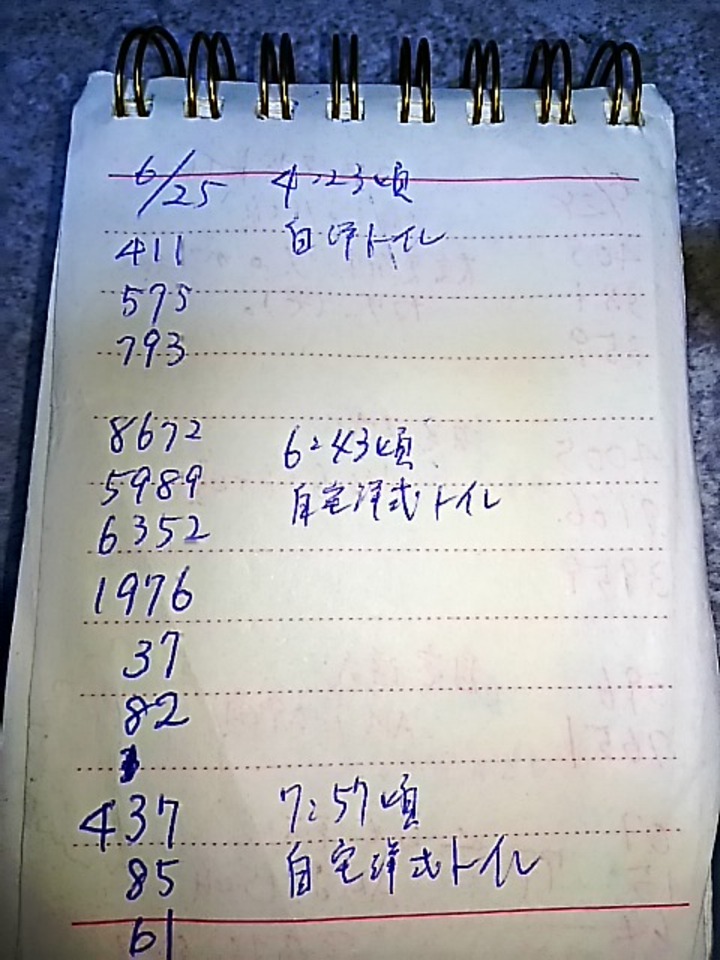 6/25 4:23頃
411 自宅トイレ
575
793
8672 6:43頃
5989 自宅洋式トイレ
6352
1976
37
82
437 7:57頃
85 自宅洋式トイレ
61